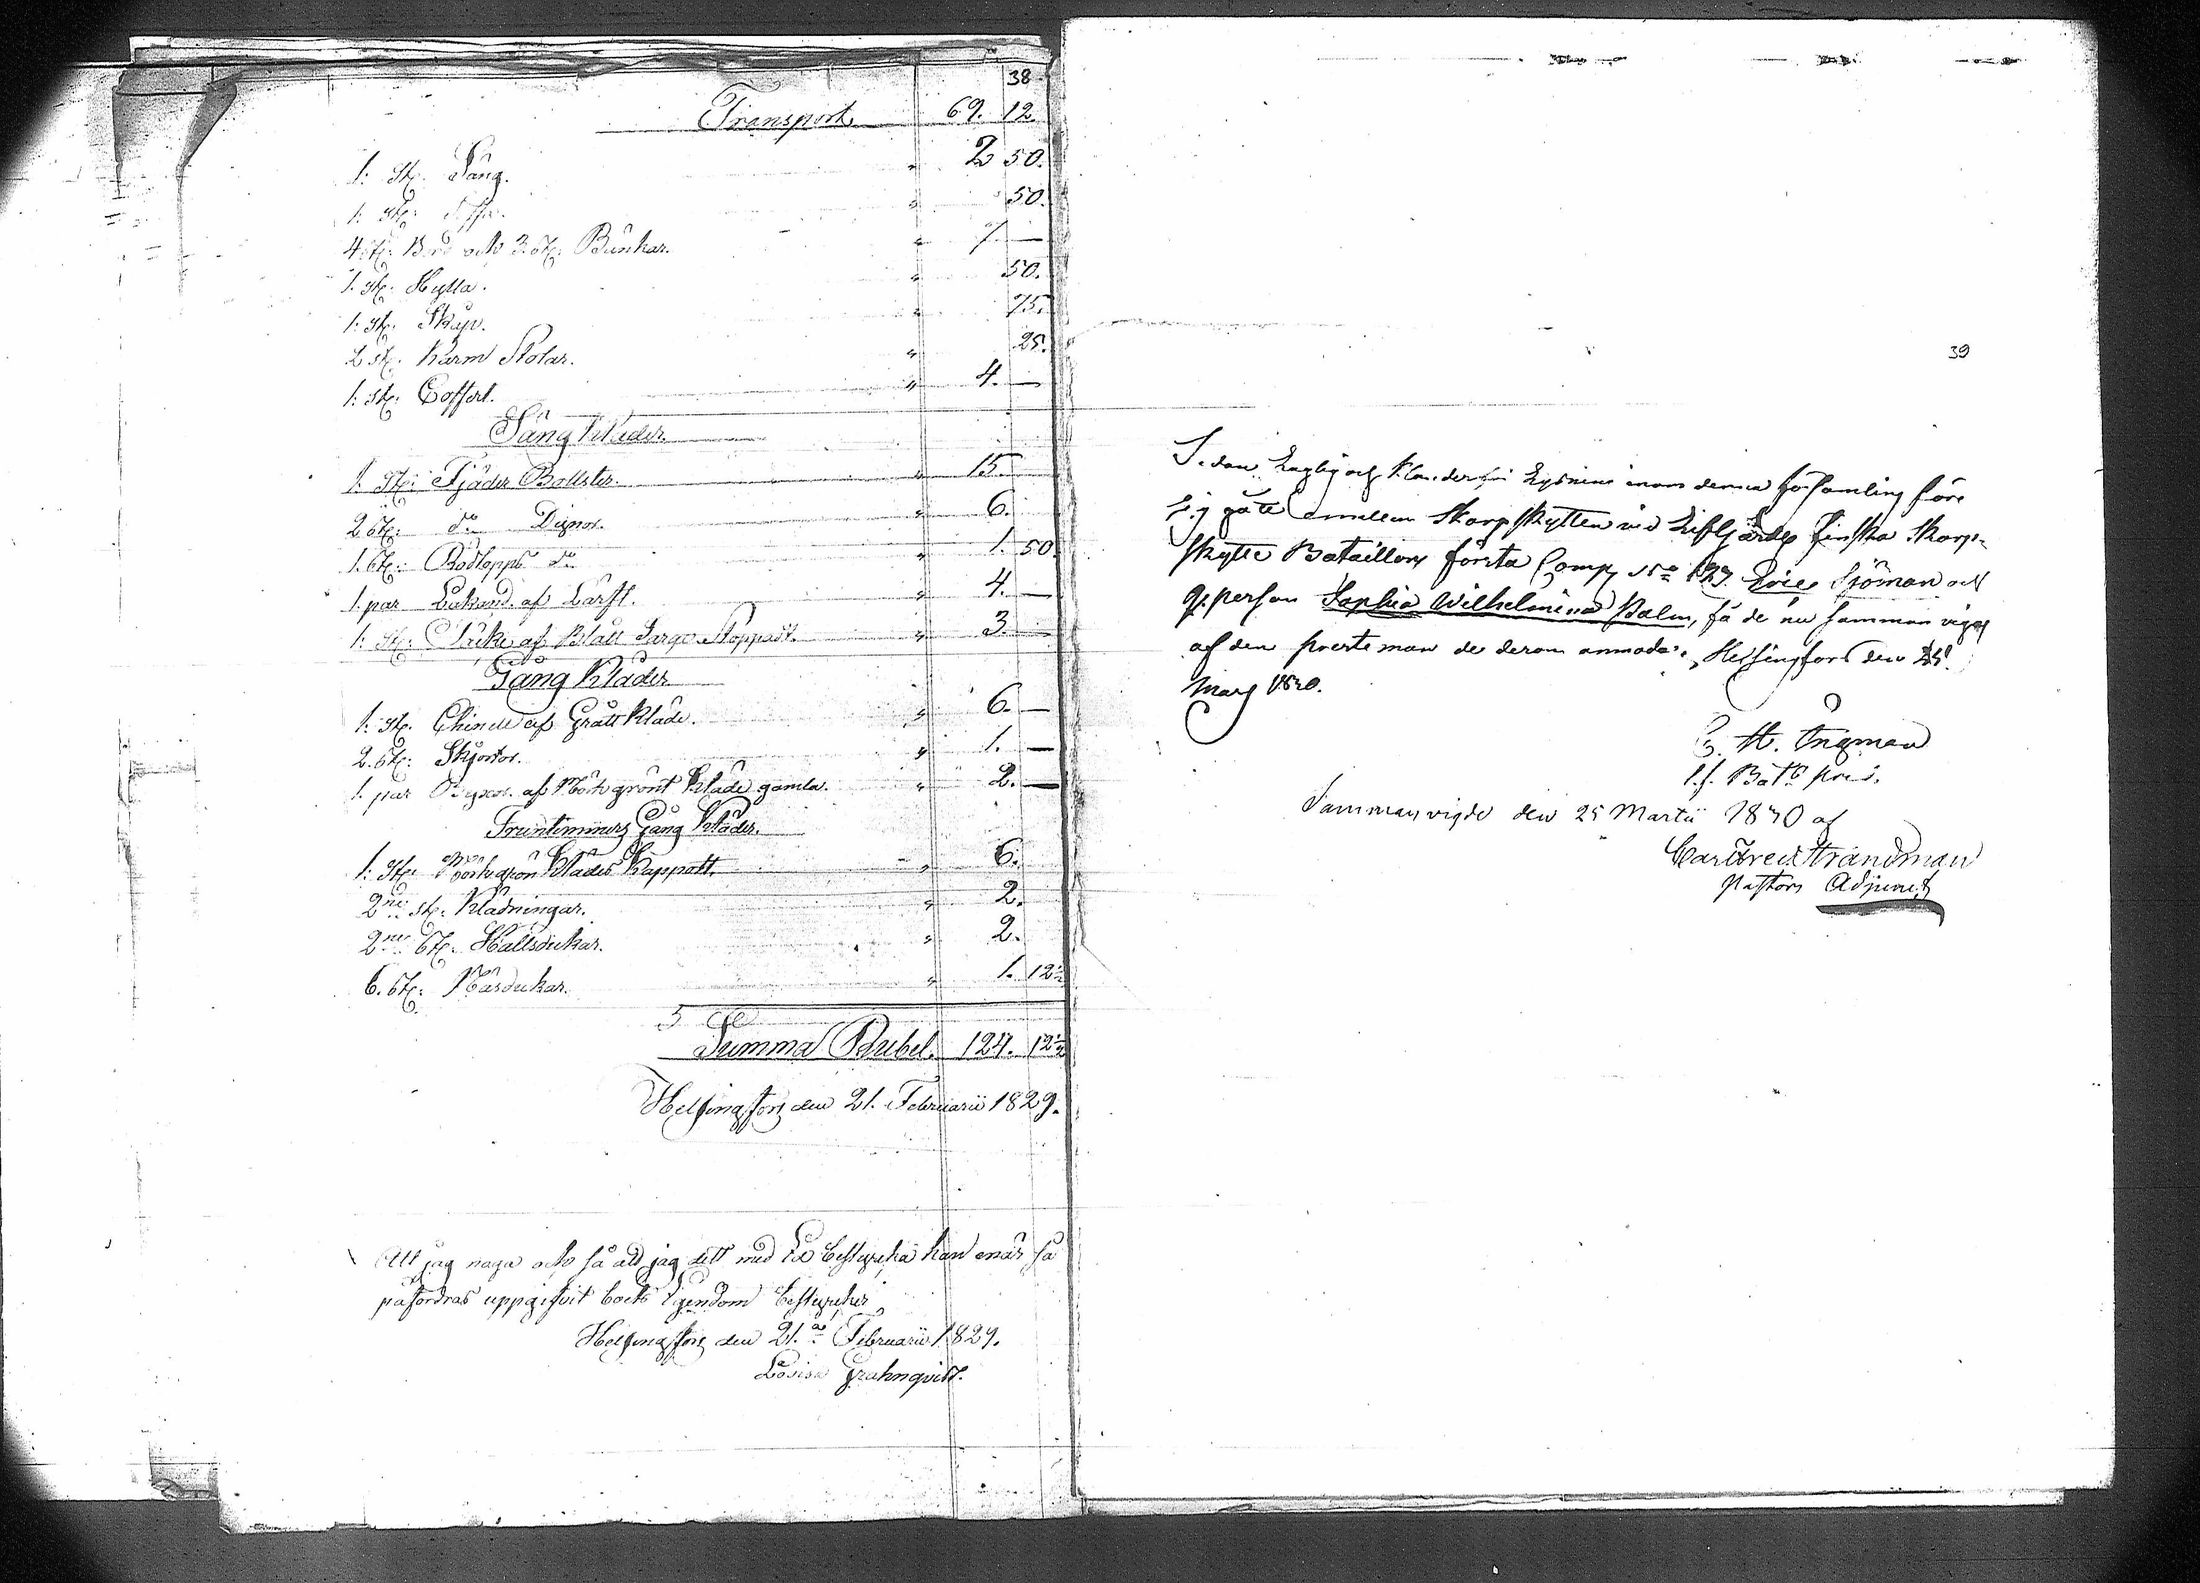 38
Transport 69. 12.
1: st: Säng. " 2 50.
1: st: " 50.
4 st: Bord och 3. st: Bunkar. " 7. —
1. st: Hylla. " 50.
1: st: Skåp. 75.
2 st: Karm Stolar. " 25.
1: st: Coffert. " 4. —
Säng Kläder.
1. st: Fjäder Bollster. " 15.
2 st: d:o Dÿnor. " 6.
1. st: Rödlapps d:o " 1. 50.
1. par Lakand. af Lärft. " 4. —
1: st: Täcke af Blått Sarge Stoppadt. " 3. —
Gång Kläder
1: st: Chinell af Grått Kläde. " 6. —
2. st: Skjortor. " 1. —
1. par Byxor. af Mörkgrönt Kläde gamla. " 2. —
Fruntimmers Gång Kläder.
1: st: Mörkgrön Klädes Kappott. " 6.
2ne st: Klädningar. " 2.
2ne st: Hallsdukar. " 2.
6. st: Näsdukar. " 1. 12½
Summa Rubel. 124. 12½
Helsingfors den 21. Februarii 1829.
Att jag någa och så att jag det med Ed bestyrcka kan enär så
påfordras uppgifvit boets Egendom bestyrcker
Helsingfors den 21.ta Februarii 1829.
Lovisa Grahnqvist.
39
Sedan Laglig och Klanderfri Lysning inom denna församling före
sig gått emellan Skarpskytten vid Lifgardes Finska Skarp-
skytte Bataillons första Comp. N:o 127. Sjöman och
Q:person Sophia Wilhelmina Palm, få de nu samman vigas
af den prestman de derom anmoda, Helsingfors den
Mars 1840.
E. H. Ingman
t.f. Bat:s pred.
Sammanvigde den 25 Martii 1840 af
Carl Fred Strandman
Pastors Adjunct